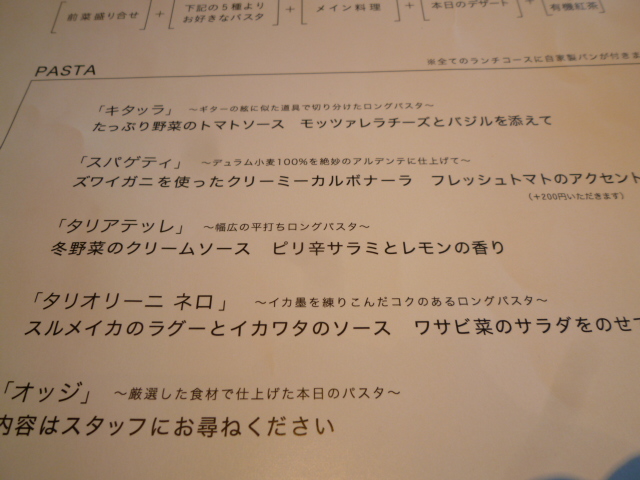 前菜盛り合せ + 下記の5種より + メイン料理 + 本日のデザート + 有機紅茶
お好きなパスタ
※全てのランチコースに自家製パンが付きま
PASTA
「キタッラ」 ～ギターの絃に似た道具で切り分けたロングパスタ～
たっぷり野菜のトマトソース モッツァレラチーズとバジルを添えて
「スパゲティ」 ～デュラム小麦100%を絶妙のアルデンテに仕上げて～
ズワイガニを使ったクリーミーカルボナーラ フレッシュトマトのアクセント
(+200円いただきます)
「タリアテッレ」 ～幅広の平打ちロングパスタ～
冬野菜のクリームソース ピリ辛サラミとレモンの香り
「タリオリーニ ネロ」 ～イカ墨を練りこんだコクのあるロングパスタ～
スルメイカのラグーとイカワタのソース ワサビ菜のサラダをのせて
「オッジ」 ～厳選した食材で仕上げた本日のパスタ～
内容はスタッフにお尋ねください